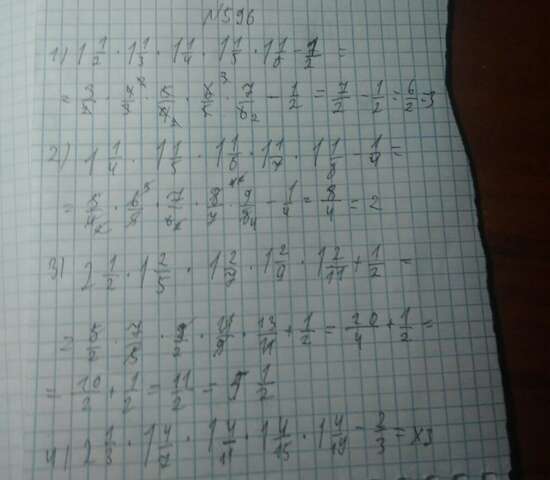 №596
1) 1 1/2 · 1 1/3 · 1 1/4 · 1 1/5 · 1 1/6 - 1/2 =
= 3/2 · 4/3 · 5/4 · 6/5 · 7/6 - 1/2 = 7/2 - 1/2 = 6/2 = 3
2) 1 1/4 · 1 1/5 · 1 1/6 · 1 1/7 · 1 1/8 - 1/4 =
= 5/4 · 6/5 · 7/6 · 8/7 · 9/8 - 1/4 = 8/4 = 2
3) 2 1/2 · 1 2/5 · 1 2/7 · 1 2/9 · 1 2/11 + 1/2 =
= 5/2 · 7/5 · 9/7 · 11/9 · 13/11 + 1/2 = 20/4 + 1/2 =
= 10/2 + 1/2 = 11/2 = 1/2
4) 2 1/3 · 1 4/7 · 1 4/11 · 1 4/15 · 1 4/19 - 2/3 = x3